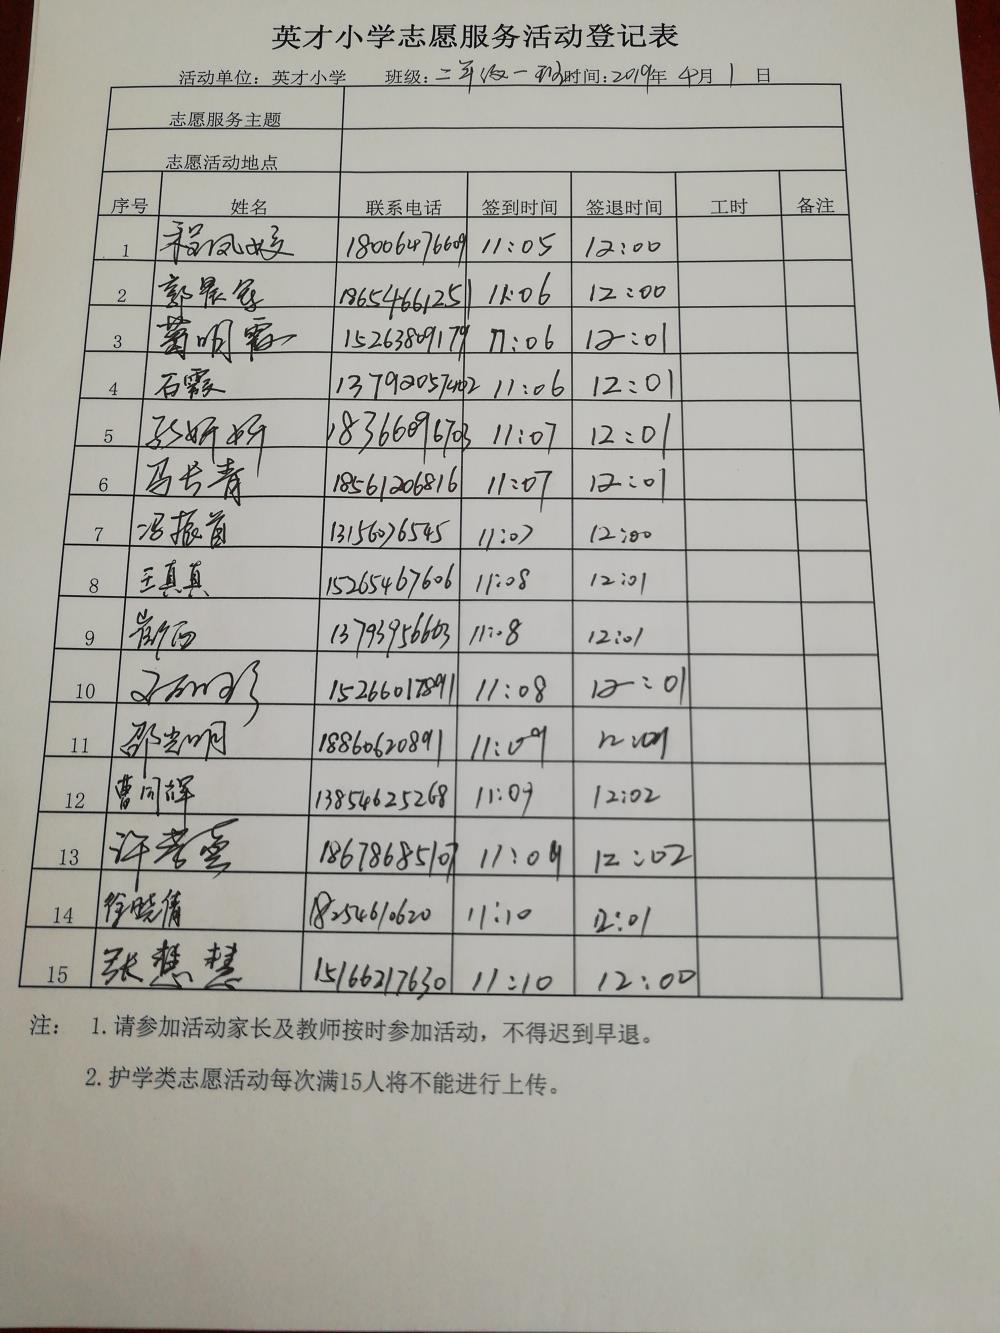 英才小学志愿服务活动登记表
活动单位：英才小学 班级：二年级一班 时间：2019年 4月 1 日
志愿服务主题
志愿活动地点
序号 姓名 联系电话 签到时间 签退时间 工时 备注
1 程凤姣 18006476609 11:05 12:00
2 郭晨 18654661251 11:06 12:00
3 明霞 15263809179 11:06 12:01
4 石霞 13792057402 11:06 12:01
5 张妍妍 18366096703 11:07 12:01
6 马长青 18561206816 11:07 12:01
7 冯振首 13156076545 11:07 12:00
8 王真真 15265467606 11:08 12:01
9 13793956603 11:08 12:01
10 15266017891 11:08 12:01
11 邵光明 18860620891 11:09 12:01
12 曹同辉 13854625268 11:09 12:02
13 许 18678685107 11:09 12:02
14 徐晓倩 18254610620 11:10 12:01
15 张慧慧 15166217630 11:10 12:00
注： 1.请参加活动家长及教师按时参加活动，不得迟到早退。
2.护学类志愿活动每次满15人将不能进行上传。